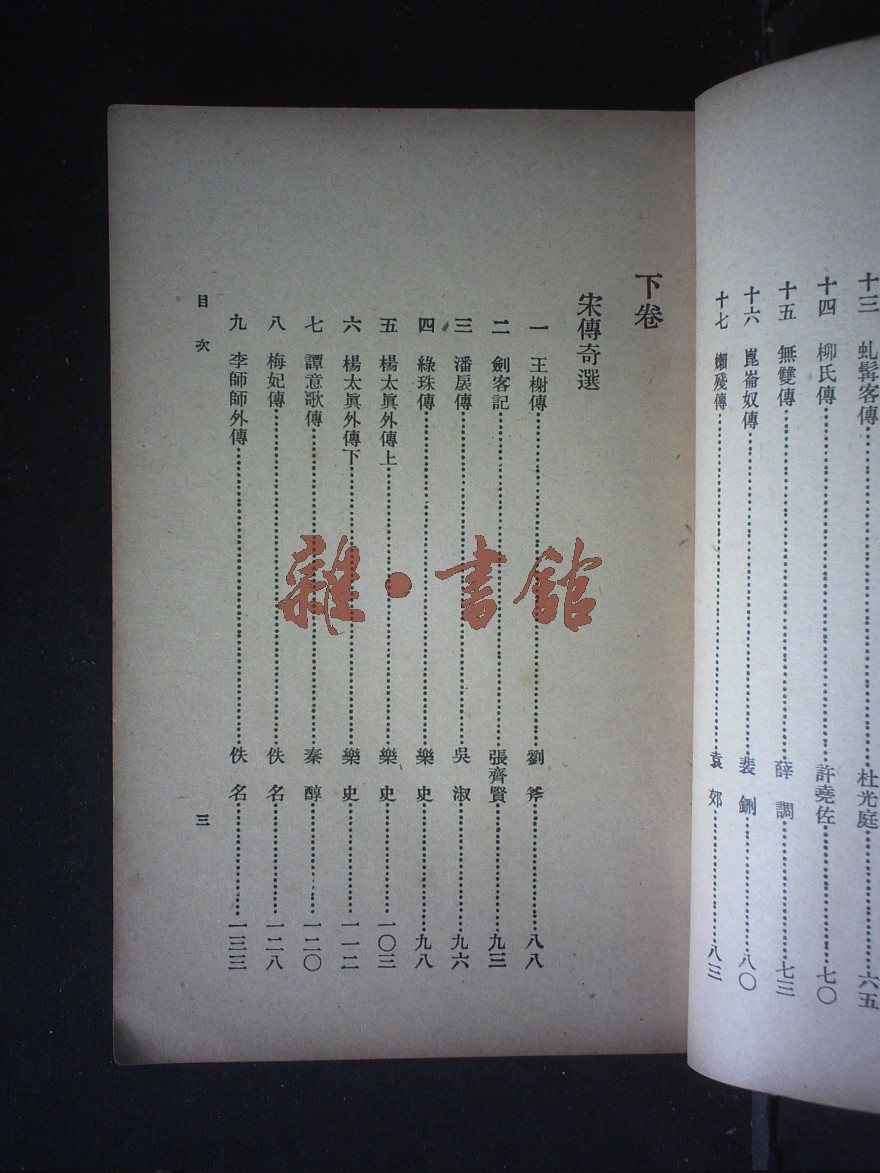 十三 虬髯客傳 杜光庭 六五
十四 柳氏傳 許堯佐 七〇
十五 無雙傳 薛調 七三
十六 崑崙奴傳 裴鉶 八〇
十七 嬾殘傳 袁郊 八三
下卷
宋傳奇選
一 王榭傳 劉斧 八八
二 劍客記 張齊賢 九三
三 潘扆傳 吳淑 九六
四 綠珠傳 樂史 九八
五 楊太眞外傳上 樂史 一〇三
六 楊太眞外傳下 樂史 一一二
七 譚意歌傳 秦醇 一二〇
八 梅妃傳 佚名 一二八
九 李師師外傳 佚名 一三三
目次
三
雜·書館